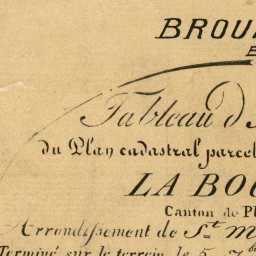 BROU
Tableau d'
du Plan cadastral parcel
LA BO
Canton de Pl
Arrondissement de St. M
Terminé sur le terrain le 5